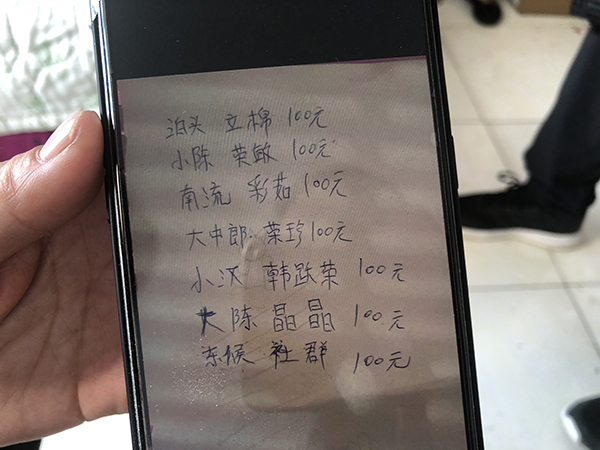 泊头 立棉 100元
小陈 荣敏 100元
南流 彩茹 100元
大中郎 荣珍 100元
小汉 韩跃荣 100元
大陈 晶晶 100元
东候 社群 100元